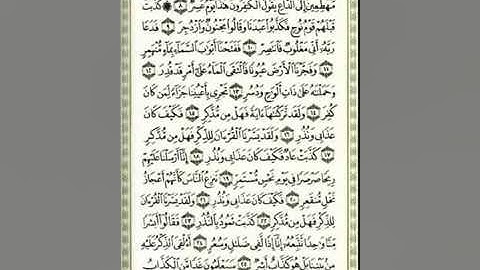 مُّهْطِعِينَ إِلَى الدَّاعِ يَقُولُ الْكَٰفِرُونَ هَٰذَا يَوْمٌ عَسِرٌ ٨ ۞ كَذَّبَتْ
قَبْلَهُمْ قَوْمُ نُوحٍ فَكَذَّبُوا عَبْدَنَا وَقَالُوا مَجْنُونٌ وَازْدُجِرَ ٩ فَدَعَا
رَبَّهُ أَنِّي مَغْلُوبٌ فَانْتَصِرْ ١٠ فَفَتَحْنَا أَبْوَٰبَ السَّمَاءِ بِمَاءٍ مُّنْهَمِرٍ
١١ وَفَجَّرْنَا الْأَرْضَ عُيُونًا فَالْتَقَى الْمَاءُ عَلَىٰ أَمْرٍ قَدْ قُدِرَ ١٢
وَحَمَلْنَٰهُ عَلَىٰ ذَاتِ أَلْوَٰحٍ وَدُسُرٍ ١٣ تَجْرِي بِأَعْيُنِنَا جَزَاءً لِّمَن كَانَ
كُفِرَ ١٤ وَلَقَد تَّرَكْنَٰهَا ءَايَةً فَهَلْ مِن مُّدَّكِرٍ ١٥ فَكَيْفَ كَانَ
عَذَابِي وَنُذُرِ ١٦ وَلَقَدْ يَسَّرْنَا الْقُرْءَانَ لِلذِّكْرِ فَهَلْ مِن مُّدَّكِرٍ
١٧ كَذَّبَتْ عَادٌ فَكَيْفَ كَانَ عَذَابِي وَنُذُرِ ١٨ إِنَّا أَرْسَلْنَا عَلَيْهِمْ
رِيحًا صَرْصَرًا فِي يَوْمِ نَحْسٍ مُّسْتَمِرٍّ ١٩ تَنزِعُ النَّاسَ كَأَنَّهُمْ أَعْجَازُ
نَخْلٍ مُّنقَعِرٍ ٢٠ فَكَيْفَ كَانَ عَذَابِي وَنُذُرِ ٢١ وَلَقَدْ يَسَّرْنَا الْقُرْءَانَ
لِلذِّكْرِ فَهَلْ مِن مُّدَّكِرٍ ٢٢ كَذَّبَتْ ثَمُودُ بِالنُّذُرِ ٢٣ فَقَالُوا أَبَشَرًا
مِّنَّا وَٰحِدًا نَّتَّبِعُهُ إِنَّا إِذًا لَّفِي ضَلَٰلٍ وَسُعُرٍ ٢٤ أَءُلْقِيَ الذِّكْرُ عَلَيْهِ
مِن بَيْنِنَا بَلْ هُوَ كَذَّابٌ أَشِرٌ ٢٥ سَيَعْلَمُونَ غَدًا مَّنِ الْكَذَّابُ